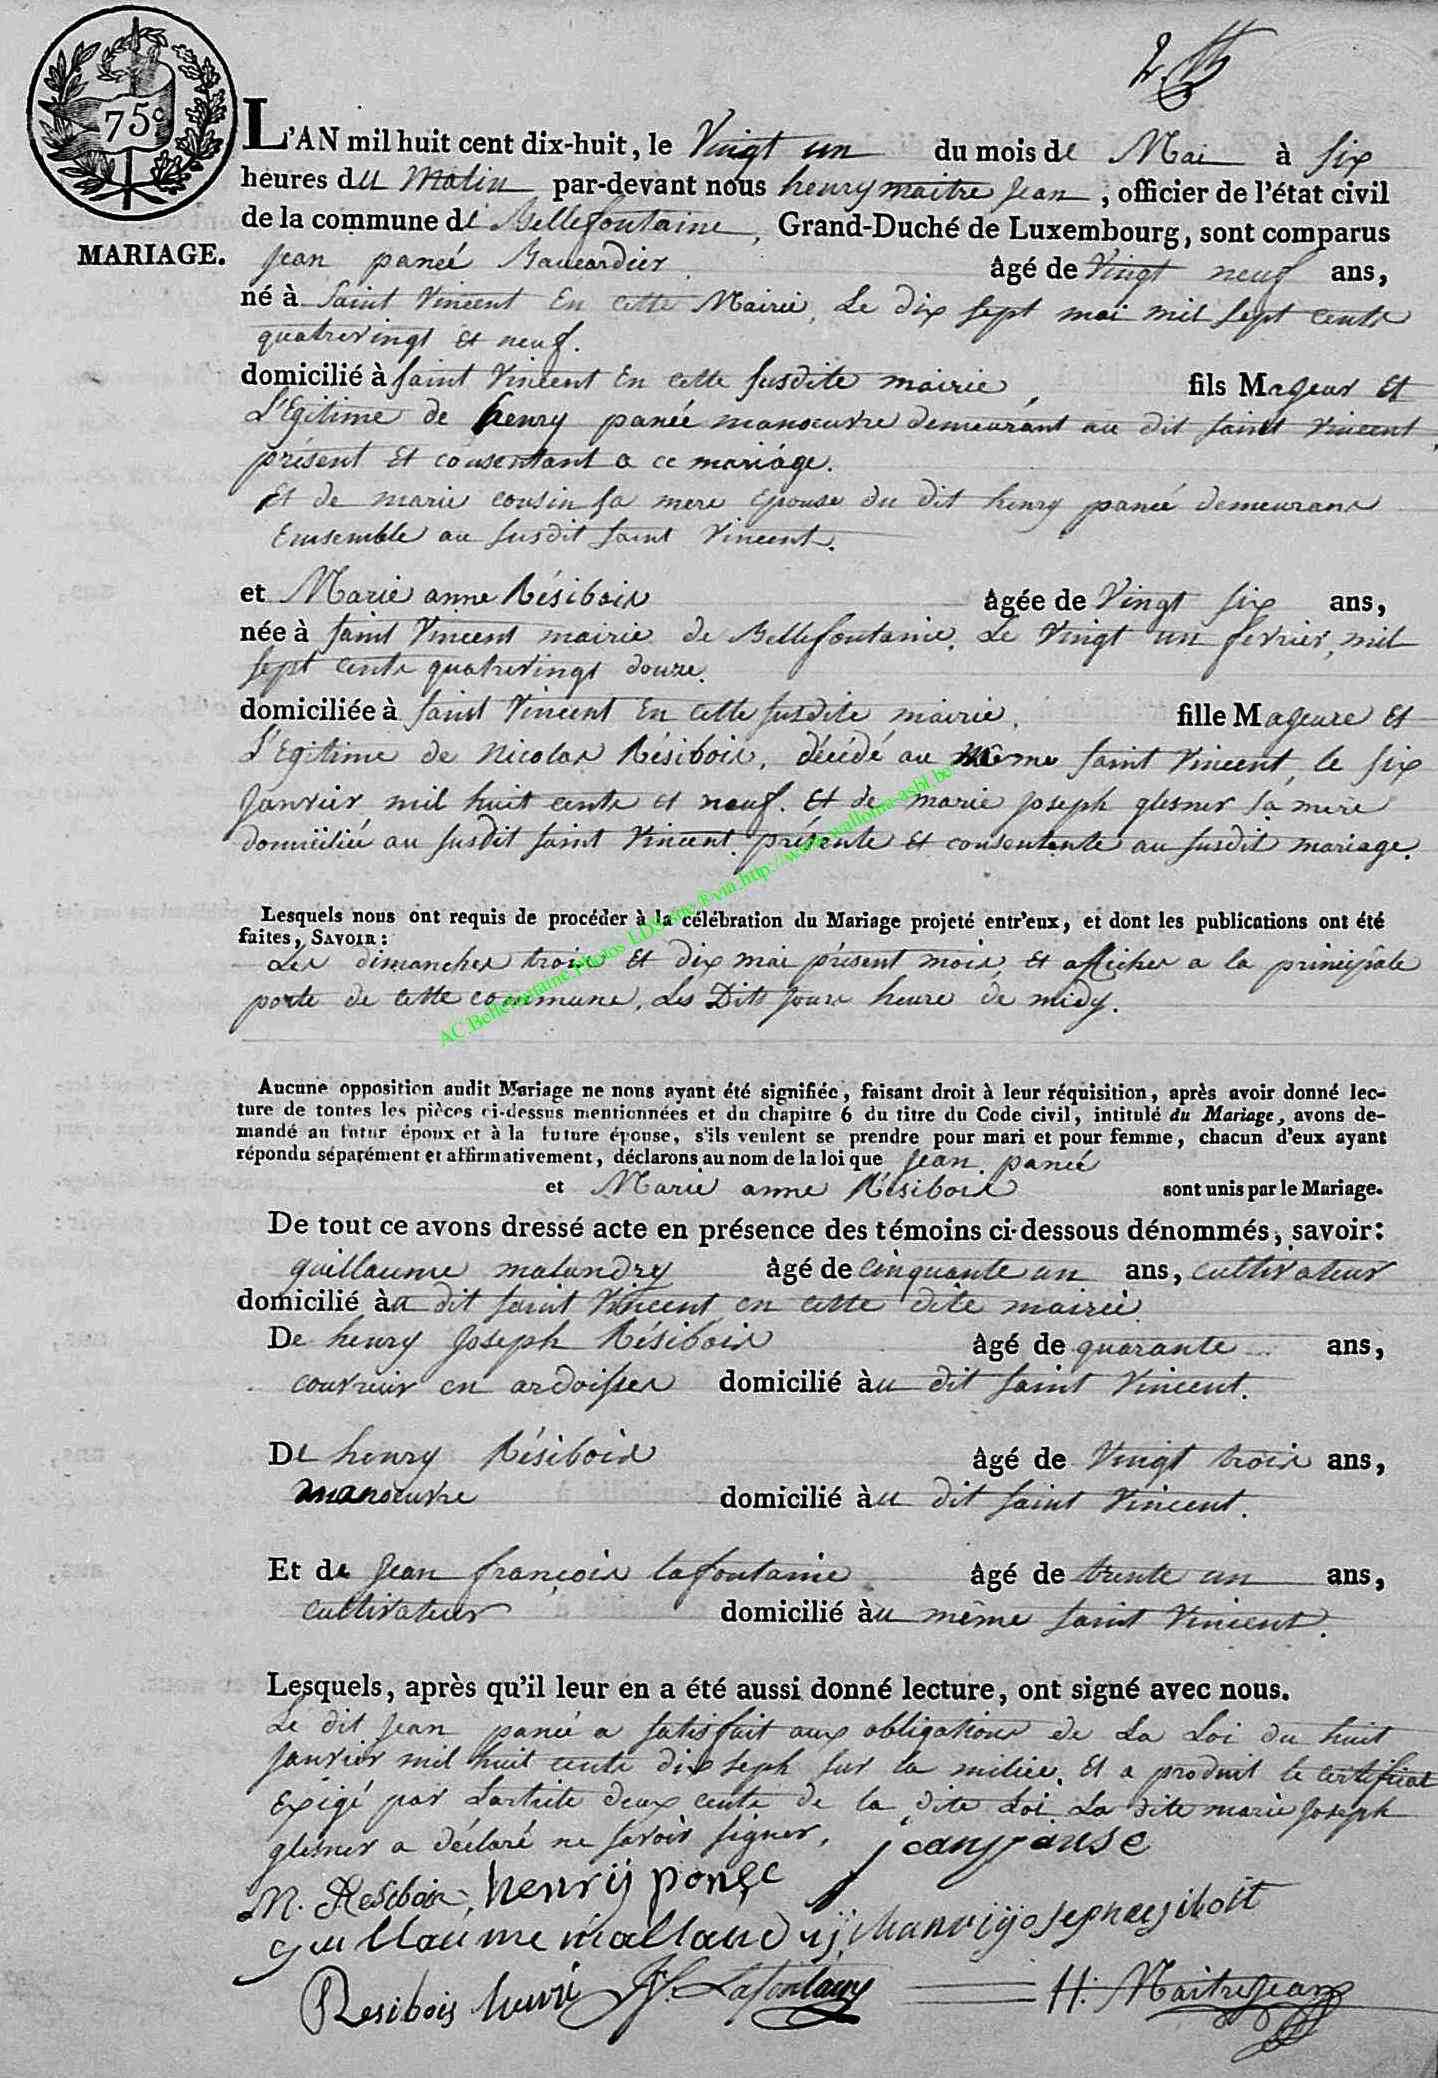 2.
75c
L'AN mil huit cent dix-huit, le Vingt un du mois de Mai à six
heures du Matin par-devant nous henry maitre jean, officier de l'état civil
de la commune de Bellefontaine, Grand-Duché de Luxembourg, sont comparus
MARIAGE.
jean paneé âgé de Vingt neuf ans,
né à Saint Vincent En cette Mairie, Le dix sept mai mil sept cents
quatrevingt et neuf.
domicilié à saint Vincent En cette susdite mairie, fils Mageur Et
L'Egitime de henry paneé manoeuvre demeurant au dit saint Vincent,
présent Et consentant a ce mariage.
Et de marie cousin sa mere Epouse du dit henry paneé demeurans
Emsemble au susdit saint Vincent.
et Marie anne Résibois âgée de Vingt six ans,
née à saint Vincent mairie de Bellefontaine. Le Vingt un fevrier, mil
sept cents quatrevingt douze.
domiciliée à saint Vincent En cette susdite mairie, fille Mageure Et
L'Egitime de Nicolas Résibois, décédé au même saint Vincent, le six
janvier mil huit cents et neuf. Et de marie joseph glesner sa mere
domiciliée au susdit saint Vincent. présente Et consentente au susdit mariage.
Lesquels nous ont requis de procéder à la célébration du Mariage projeté entr'eux, et dont les publications ont été
faites, SAVOIR :
Les dimanches trois Et dix mai présent mois, Et afficher a la principale
porte de cette commune, Les Dits jours heure de midy.
AC.Bellefontaine.Photos LDS/source F via http://www.wallonia-asbl.be
Aucune opposition audit Mariage ne nous ayant été signifiée, faisant droit à leur réquisition, après avoir donné lec-
ture de toutes les pièces ci-dessus mentionnées et du chapitre 6 du titre du Code civil, intitulé du Mariage, avons de-
mandé au futur époux et à la future épouse, s'ils veulent se prendre pour mari et pour femme, chacun d'eux ayant
répondu séparément et affirmativement, déclarons au nom de la loi que jean paneé
et Marie anne Résibois sont unis par le Mariage.
De tout ce avons dressé acte en présence des témoins ci-dessous dénommés, savoir :
guillaume malandry âgé de cinquante un ans, cultivateur
domicilié àu dit saint Vincent en cette dite mairie
De henry Joseph Résibois âgé de quarante ans,
couvreur en ardoisses domicilié àu dit saint Vincent.
De henry Résibois âgé de Vingt trois ans,
manoeuvre domicilié àu dit saint Vincent.
Et de Jean françois lafontaine âgé de trente un ans,
cultivateur domicilié àu même saint Vincent.
Lesquels, après qu'il leur en a été aussi donné lecture, ont signé avec nous.
Le dit jean paneé a satisfait aux obligations de La Loi du huit
janvier mil huit cents dix seph sur la milice, Et a produit le certificat
Exigé par Lartcite deux cents de la dite Loi. La dite marie joseph
glesner a déclaré ne savoir signer.
M. Resibois, henrij
guillaume mallandrij,
Resibois henri J.f. Lafontaine H. Maitrejean